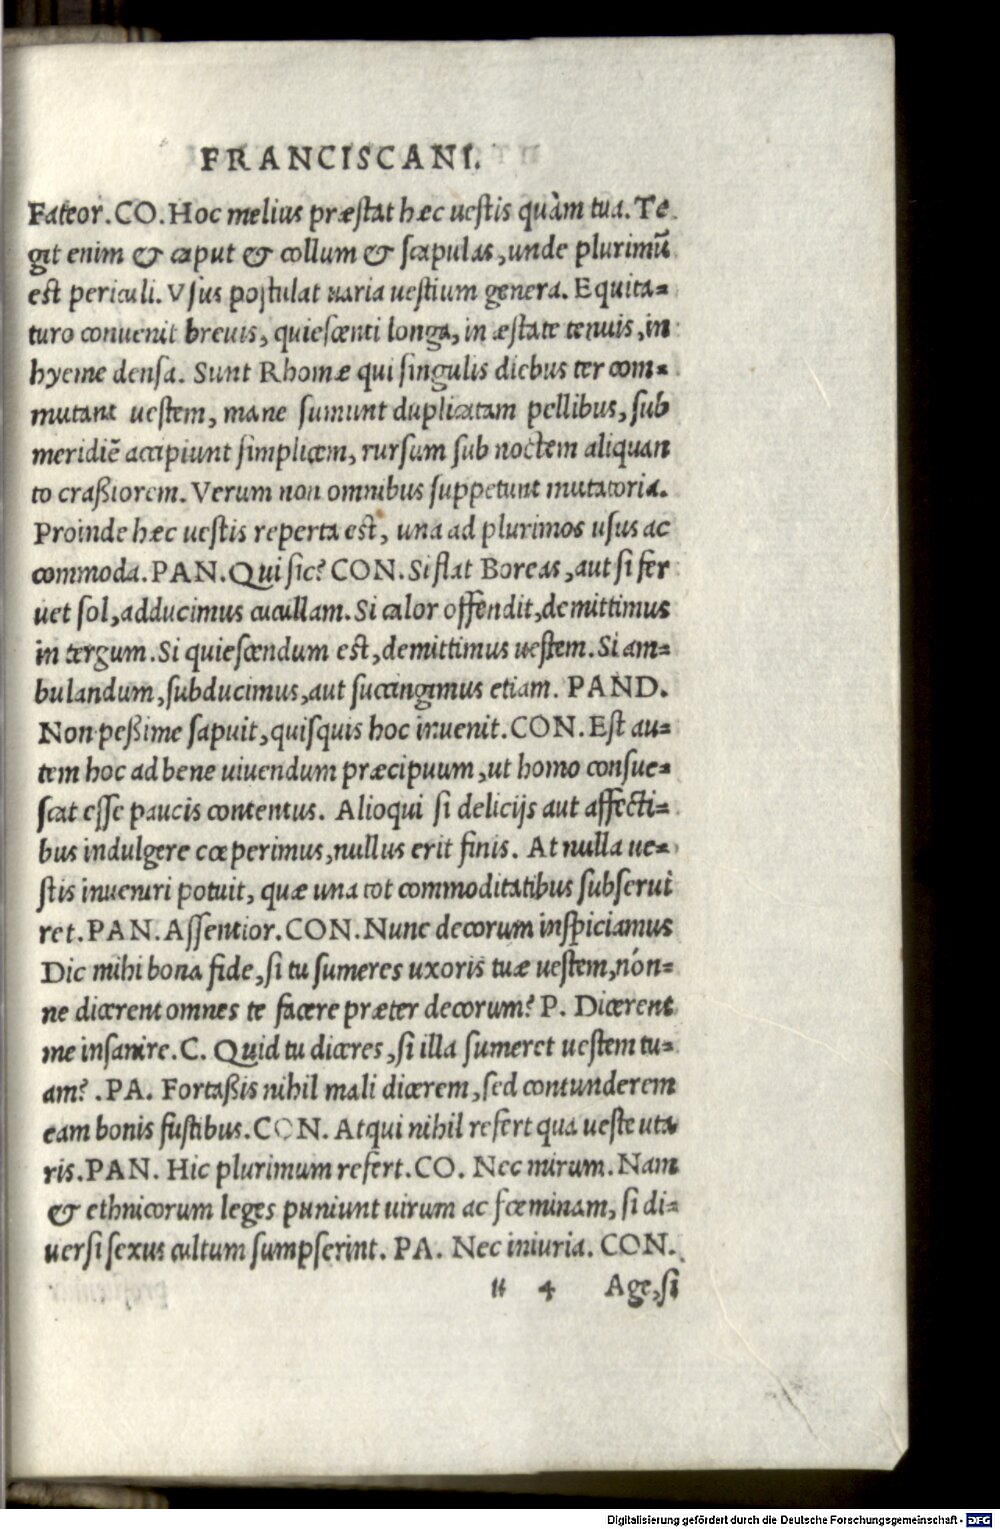 FRANCISCANI.
Fateor. CO. Hoc melius præstat hæc uestis quàm tua. Te
git enim & caput & collum & scapulas, unde plurimũ
est periculi. Vsus postulat uaria uestium genera. Equita=
turo conuenit breuis, quiescenti longa, in æstate tenuis, in
hyeme densa. Sunt Rhomæ qui singulis diebus ter com=
mutant uestem, mane sumunt duplicatam pellibus, sub
meridiẽ accipiunt simplicem, rursum sub noctem aliquan
to craßiorem. Verum non omnibus suppetunt mutatoria.
Proinde hæc uestis reperta est, una ad plurimos usus ac
commoda. PAN. Qui sic? CON. Si flat Boreas, aut si fer
uet sol, adducimus cucullam. Si calor offendit, demittimus
in tergum. Si quiescendum est, demittimus uestem. Si am=
bulandum, subducimus, aut succingimus etiam. PAND.
Non peßime sapuit, quisquis hoc inuenit. CON. Est au=
tem hoc ad bene uiuendum præcipuum, ut homo consue=
scat esse paucis contentus. Alioqui si delicijs aut affecti=
bus indulgere cœperimus, nullus erit finis. At nulla ue=
stis inueniri potuit, quæ una tot commoditatibus subserui
ret. PAN. Assentior. CON. Nunc decorum inspiciamus
Dic mihi bona fide, si tu sumeres uxoris tuæ uestem, nón=
ne dicerent omnes te facere præter decorum? P. Dicerent
me insanire. C. Quid tu diceres, si illa sumeret uestem tu=
am? . PA. Fortaßis nihil mali dicerem, sed contunderem
eam bonis fustibus. CON. Atqui nihil refert qua ueste uta
ris. PAN. Hic plurimum refert. CO. Nec mirum. Nam
& ethnicorum leges puniunt uirum ac fœminam, si di=
uersi sexus cultum sumpserint. PA. Nec iniuria. CON.
u 4 Age, si
Digitalisierung gefördert durch die Deutsche Forschungsgemeinschaft - DFG